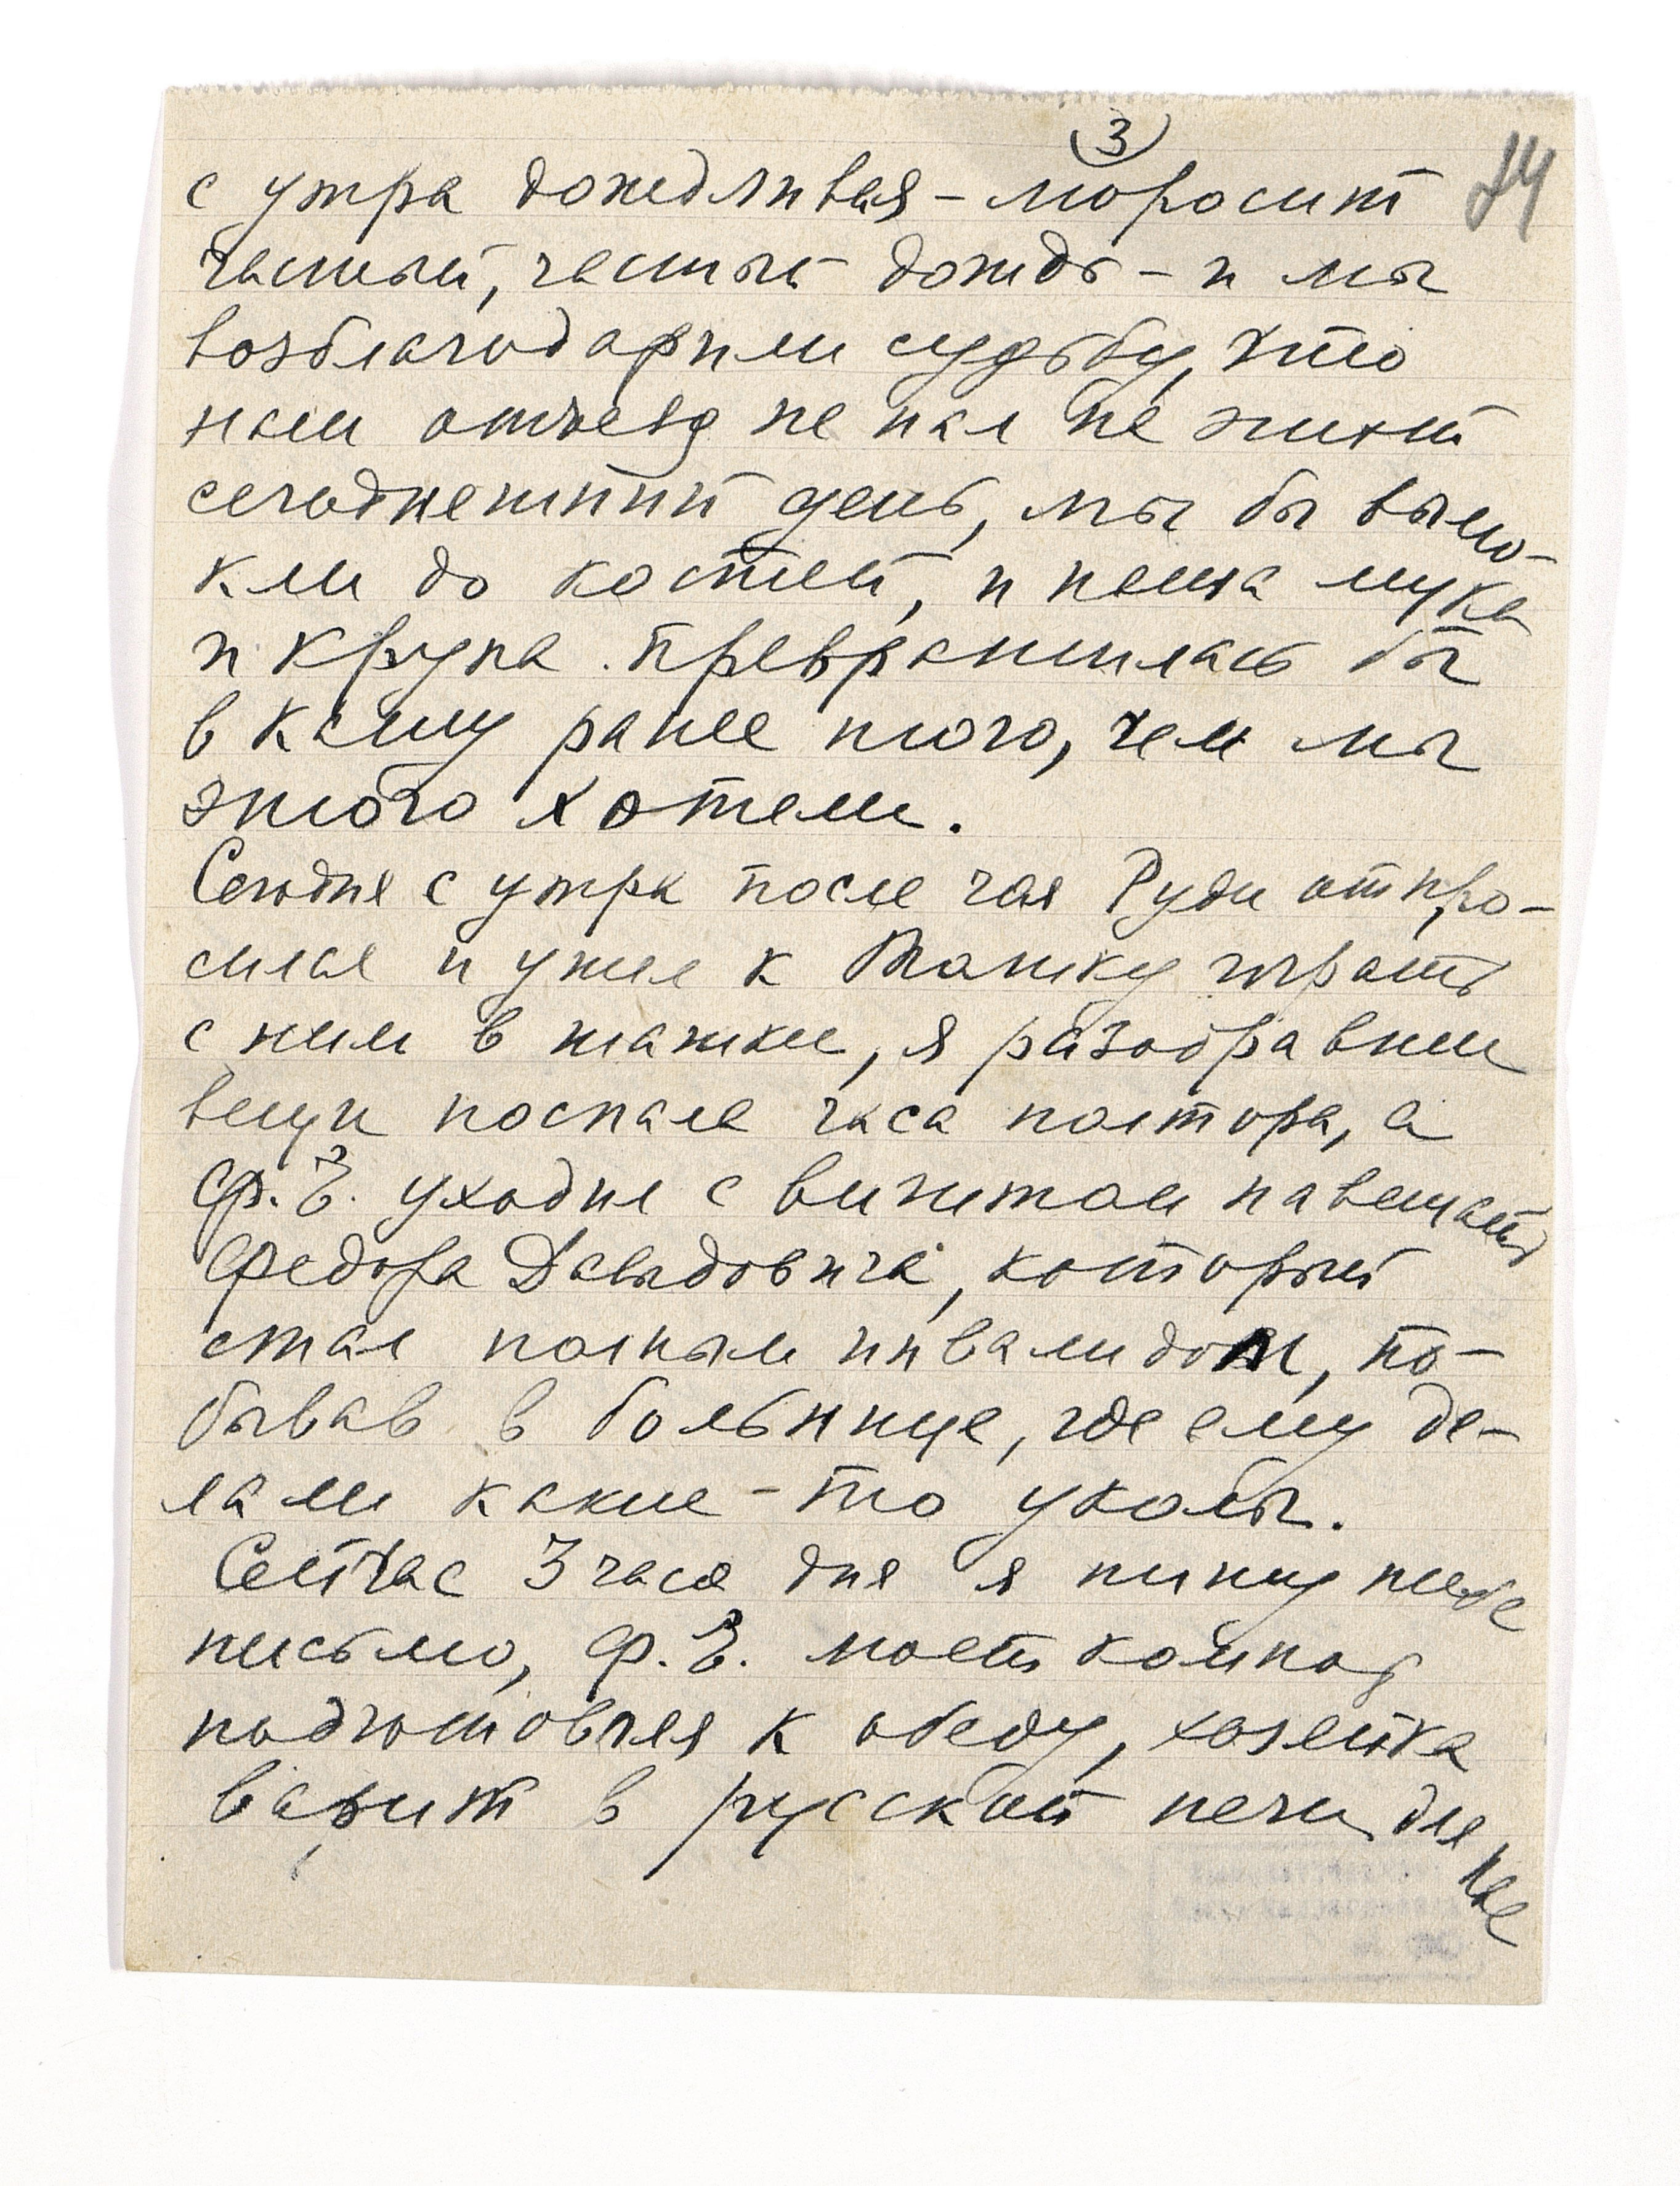 3
с утра дождливая - моросит
частый, частый дождь - и мы
возблагодарили судьбу, что
наш отъезд не пал на этот
сегоднешний день, мы бы вымо-
кли до костей, и наша мука
и крупа превратилась бы
в кашу ранее того, чем мы
этого хотели.
Сегодня с утра после чая Руди отпро-
сился и ушел к играть
с ним в шашки, я разобравши
вещи поспала часа полтора, а
Ф. Э. уходил с визитом навещать
Федора Давыдовича, который
стал полным инвалидом, по-
бывав в больнице, где ему де-
лали какие-то уколы.
Сейчас 3 часа дня я пишу тебе
письмо, Ф. Э. моет
подготовляя к обеду, хозяйка
варит в русской печи для нас